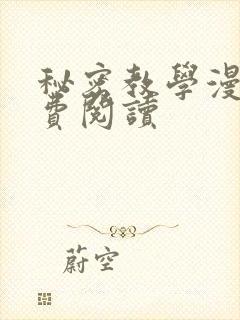 秘密教學漫
費閱讀
蔚空